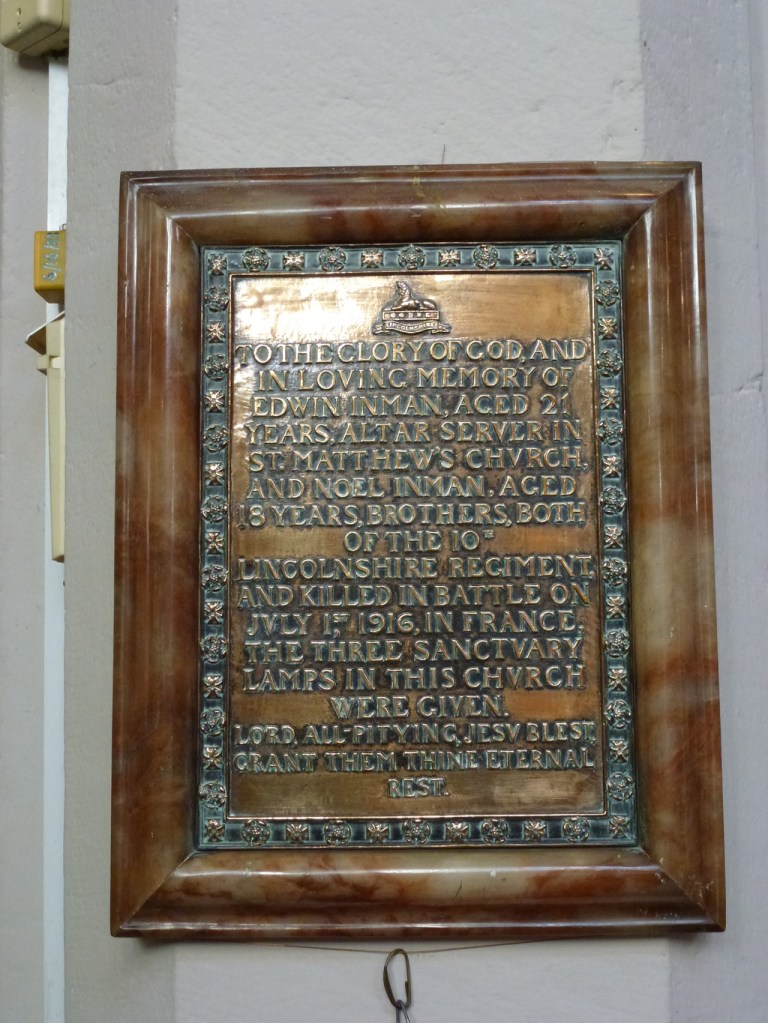 LINCOLNSHIRE
TO THE GLORY OF GOD, AND
IN LOVING MEMORY OF
EDWIN INMAN, AGED 21
YEARS, ALTAR SERVER IN
ST. MATTHEW'S CHVRCH,
AND NOEL INMAN, AGED
18 YEARS, BROTHERS, BOTH
OF THE 10TH
LINCOLNSHIRE REGIMENT,
AND KILLED IN BATTLE ON
JVLY 1ST, 1916, IN FRANCE.
THE THREE SANCTVARY
LAMPS IN THIS CHVRCH
WERE GIVEN.
LORD, ALL-PITYING, JESV BLEST,
GRANT THEM THINE ETERNAL
REST.